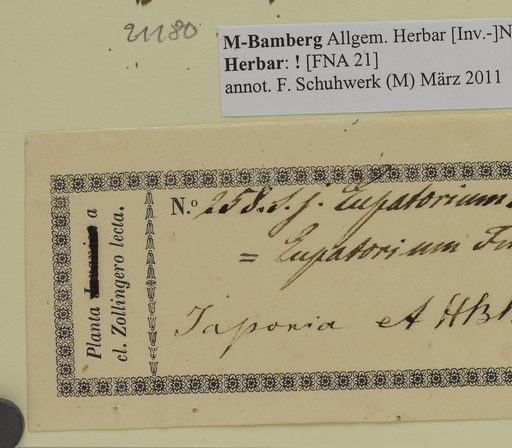 21180
M-Bamberg Allgem. Herbar [Inv.-]N
Herbar: ! [FNA 21]
annot. F. Schuhwerk (M) März 2011
Planta a
cl. Zollingero lecta.
N.º 258. S. j. Eupatorium
= Eupatorium
Japonia et HB